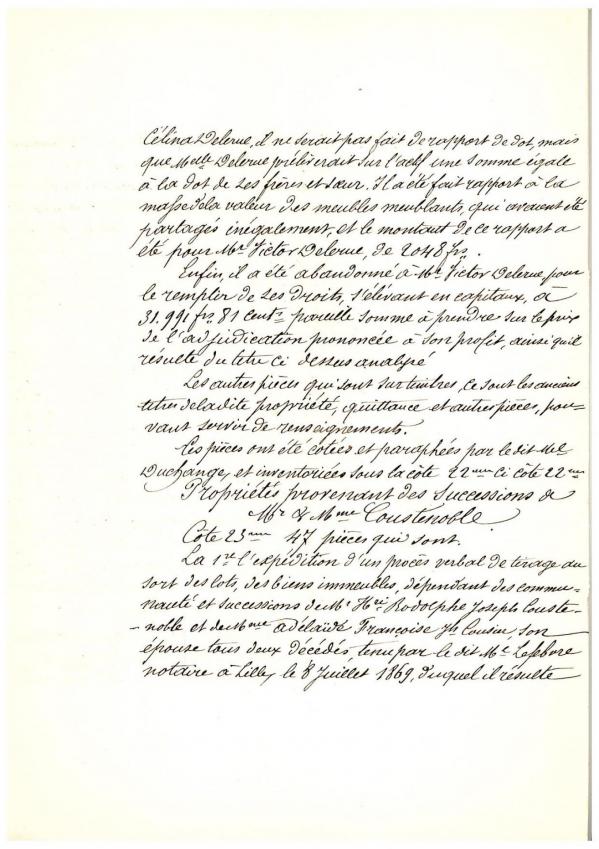 Célina Delerue, il ne serait pas fait de rapport de dot, mais
que Melle Delerue prélèverait sur l'actif une somme égale
à la dot de ses frères et sœur. Il a été fait rapport à la
masse de la valeur des meubles meublants, qui avaient été
partagés inégalement, et le montant de ce rapport a
été pour Mr Victor Delerue, de 2048 frs.
Enfin, il a été abandonné à Mr Victor Delerue, pour
le remplir de ses droits, s'élevant en capitaux, à
31.991 frs 81 cents pareille somme à prendre sur le prix
de l'adjudication prononcée à son profit, ainsi qu'il
résulte du titre ci dessus analysé
Les autres pièces qui sont sur timbres, ce sont les anciens
titres de ladite propriété, quittance et autres pièces, pou-
vant servir de renseignements.
Ces pièces ont été cotées et paraphées par le dit
Duchange, et inventoriées sous la côte 22me ci côte 22me
Propriétés provenant des Successions de
Mr & Mme Coustenoble
Côte 23me 47 pièces qui sont.
La 1re l'expédition d'un procès verbal de tirage au
sort des lots, des biens immeubles, dépendant des commu-
nauté et successions de Mr Hri Rodolphe Joseph Couste-
-noble et de Mme adélaïde Françoise Jh Cousin, son
épouse tous deux décédés, tenu par le dit Me Lefebvre
notaire à Lille, le 8 Juillet 1869, duquel il résulte